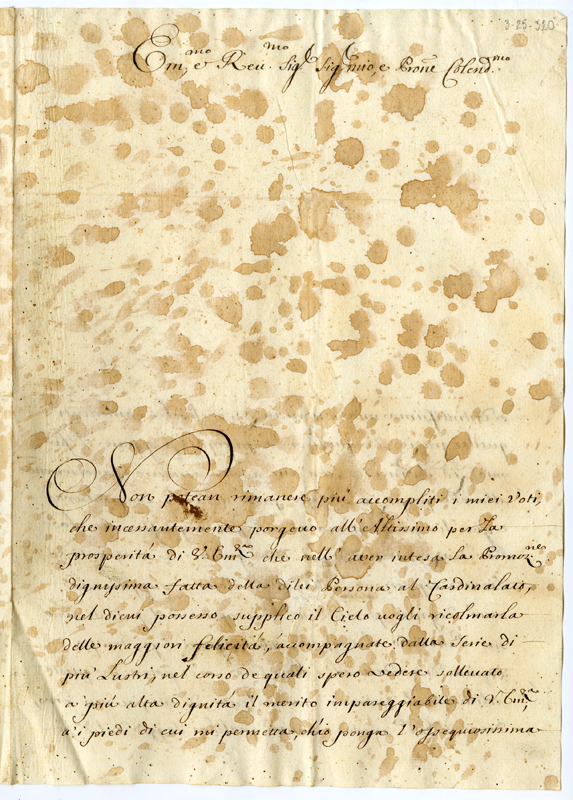 3-25-320
Em.mo e Reu.mo Sig.r Sig.r mio, e Prone Colend.mo
Non potean rimanere più accompliti i miei Voti,
che incessantemente porgeuo all'Altissimo per La
prosperità di V. Em.za che nell'auer intesa La Promoz.ne
dignissima fatta della dilei Persona al Cardinalato,
nel dicui possesso supplico il Cielo uogli ricolmarla
delle maggiori felicità, accompagnate dalla serie di
più Lustri, nel corso de quali spero uedere solleuato
a più alta dignità il merito impareggiabile di V. Em.za
a'i piedi di cui mi permetta, ch'io ponga l'ossequiosissima